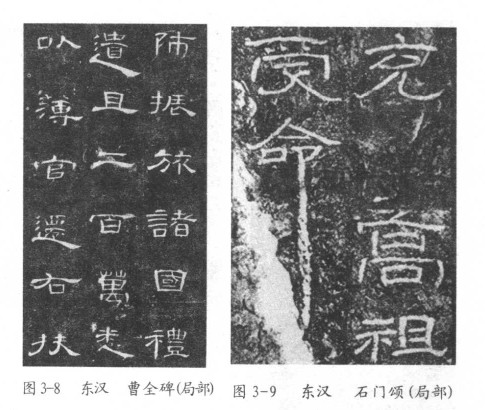 師振旅諸國禮
遺且二百萬悉
以薄官遷右扶
充高祖
受命
图3-8 东汉 曹全碑(局部)
图3-9 东汉 石门颂(局部)